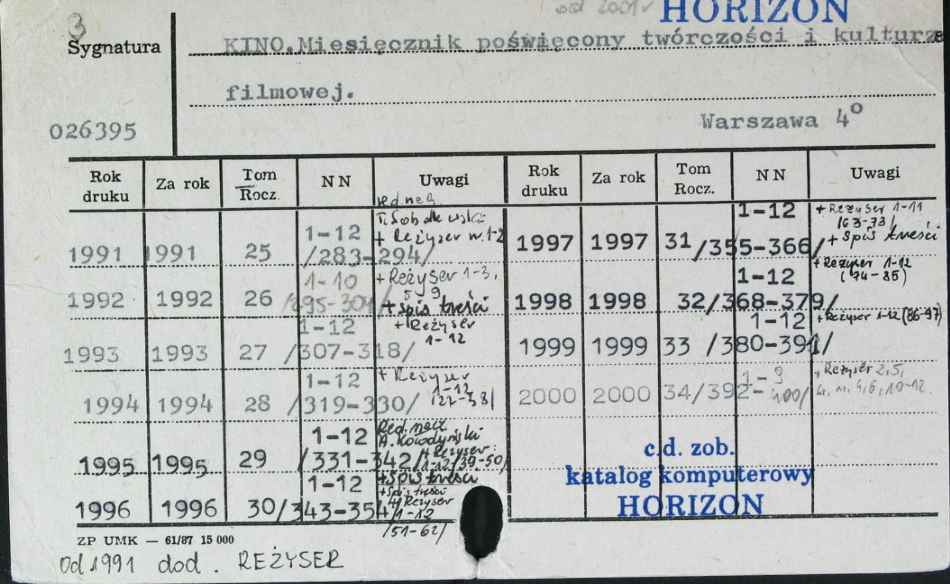 3 od 2001 r HORIZON
Sygnatura KINO.Miesięcznik poświęcony twórczości i kulturze
filmowej.
026395 Warszawa 4o
Rok druku Za rok Tom Rocz. NN Uwagi
1991 1991 25 1-12 /283-294/ red. nacz. + Reżyser nr. 1-2
1992 1992 26 1-10 /295-304/ + Reżyser 1-3, 5-9 + spis treści
1993 1993 27 1-12 /307-318/ + Reżyser 1-12
1994 1994 28 1-12 /319-330/ + Reżyser 1-12
1995 1995 29 1-12 /331-342/ Red. nacz. + Reżyser 1-12 /39-50/ + Spis treści
1996 1996 30 /343-354/ 1-12 + Spis treści + Reżyser 1-12 /51-62/
Rok druku Za rok Tom Rocz. NN Uwagi
1997 1997 31 1-12 /355-366/ + Reżyser 1-11 /63-73/ + Spis treści
1998 1998 32 1-12 /368-379/ + Reżyser 1-12 (74-85)
1999 1999 33 1-12 /380-391/ + Reżyser 1-12 (86-97)
2000 2000 34 1-9 /392-400/ + Reżyser 2,5,
c.d. zob.
katalog komputerowy
HORIZON
ZP UMK — 61/87 15 000
Od 1991 dod. REŻYSER